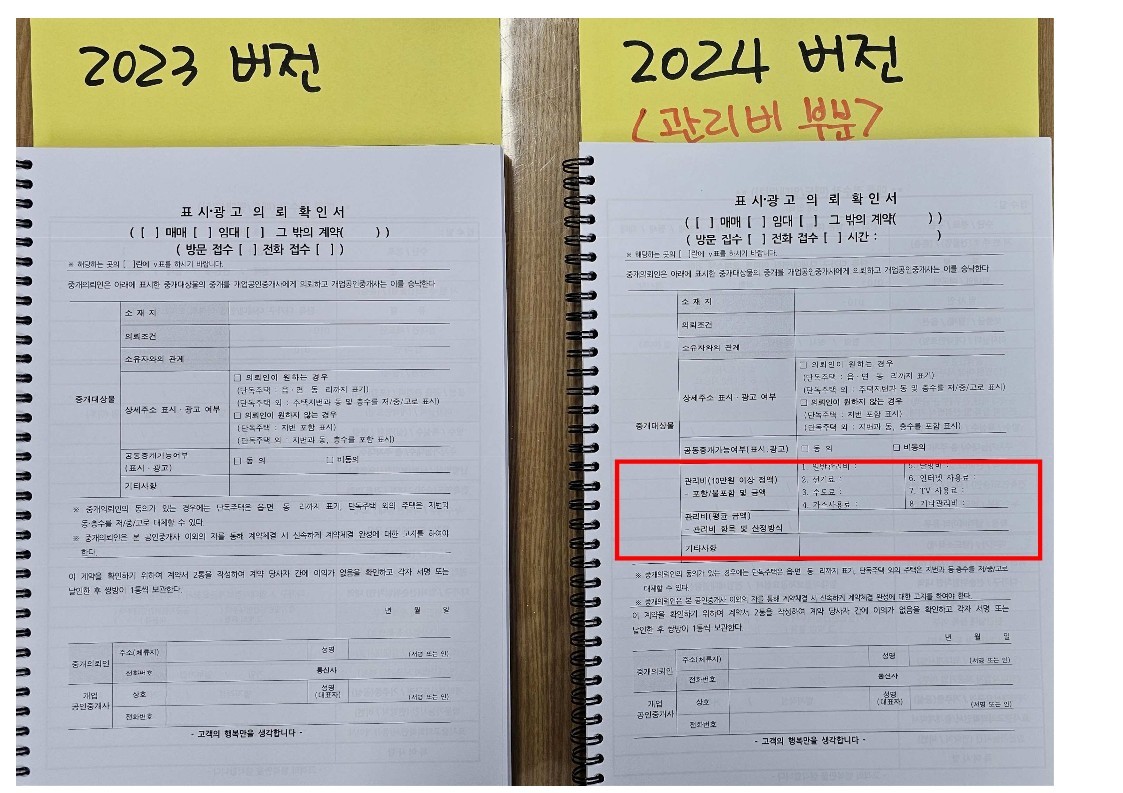 2023 버전
표시·광고 의뢰 확인서
( [ ] 매매 [ ] 임대 [ ] 그 밖의 계약( ) )
( 방문 접수 [ ] 전화 접수 [ ] )
※ 해당하는 곳의 [ ]란에 v표를 하시기 바랍니다.
중개의뢰인은 아래에 표시한 중개대상물의 중개를 개업공인중개사에게 의뢰하고 개업공인중개사는 이를 승낙한다.
중개대상물
소 재 지
의뢰조건
소유자와의 관계
상세주소 표시·광고 여부
□ 의뢰인이 원하는 경우
(단독주택 : 읍·면·동·리까지 표기)
(단독주택 외 : 주택지번과 동 및 층수를 저/중/고로 표시)
□ 의뢰인이 원하지 않는 경우
(단독주택 : 지번 포함 표시)
(단독주택 외 : 지번과 동, 층수를 포함 표시)
공동중개가능여부
(표시·광고)
□ 동 의 □ 비동의
기타사항
※ 중개의뢰인의 동의가 있는 경우에는 단독주택은 읍·면·동·리까지 표기, 단독주택 외의 주택은 지번과
동·층수를 저/중/고로 대체할 수 있다.
※ 중개의뢰인은 본 공인중개사 이외의 자를 통해 계약체결 시 신속하게 계약체결 완성에 대한 고지를 하여야
한다.
이 계약을 확인하기 위하여 계약서 2통을 작성하여 계약 당사자 간에 이의가 없음을 확인하고 각자 서명 또는
날인한 후 쌍방이 1통씩 보관한다.
년 월 일
중개의뢰인
주소(체류지) 성명 (서명 또는 인)
전화번호 통신사
개업
공인중개사
상호 성명
(대표자) (서명 또는 인)
전화번호
- 고객의 행복만을 생각합니다 -
2024 버전
<관리비 부분>
표시·광고 의뢰 확인서
( [ ] 매매 [ ] 임대 [ ] 그 밖의 계약( ) )
( 방문 접수 [ ] 전화 접수 [ ] 시간 : )
※ 해당하는 곳의 [ ]란에 v표를 하시기 바랍니다.
중개의뢰인은 아래에 표시한 중개대상물의 중개를 개업공인중개사에게 의뢰하고 개업공인중개사는 이를 승낙한다.
중개대상물
소 재 지
의뢰조건
소유자와의 관계
상세주소 표시·광고 여부
□ 의뢰인이 원하는 경우
(단독주택 : 읍·면·동·리까지 표기)
(단독주택 외 : 주택지번과 동 및 층수를 저/중/고로 표시)
□ 의뢰인이 원하지 않는 경우
(단독주택 : 지번 포함 표시)
(단독주택 외 : 지번과 동, 층수를 포함 표시)
공동중개가능여부(표시·광고) □ 동 의 □ 비동의
관리비(10만원 이상 정액)
- 포함/불포함 및 금액
1. 일반관리비 :
2. 전기료 :
3. 수도료 :
4. 가스사용료 :
5. 난방비 :
6. 인터넷 사용료
7. TV 사용료 :
8. 기타관리비 :
관리비(평균 금액)
- 관리비 항목 및 산정방식
기타사항
※ 중개의뢰인의 동의가 있는 경우에는 단독주택은 읍·면·동·리까지 표기, 단독주택 외의 주택은 지번과 동·층수를 저/중/고로
대체할 수 있다.
※ 중개의뢰인은 본 공인중개사 이외의 자를 통해 계약체결 시 신속하게 계약체결 완성에 대한 고지를 하여야 한다.
이 계약을 확인하기 위하여 계약서 2통을 작성하여 계약 당사자 간에 이의가 없음을 확인하고 각자 서명 또는
날인한 후 쌍방이 1통씩 보관한다.
년 월 일
중개의뢰인
주소(체류지) 성명 (서명 또는 인)
전화번호 통신사
개업
공인중개사
상호 성명
(대표자) (서명 또는 인)
전화번호
- 고객의 행복만을 생각합니다 -